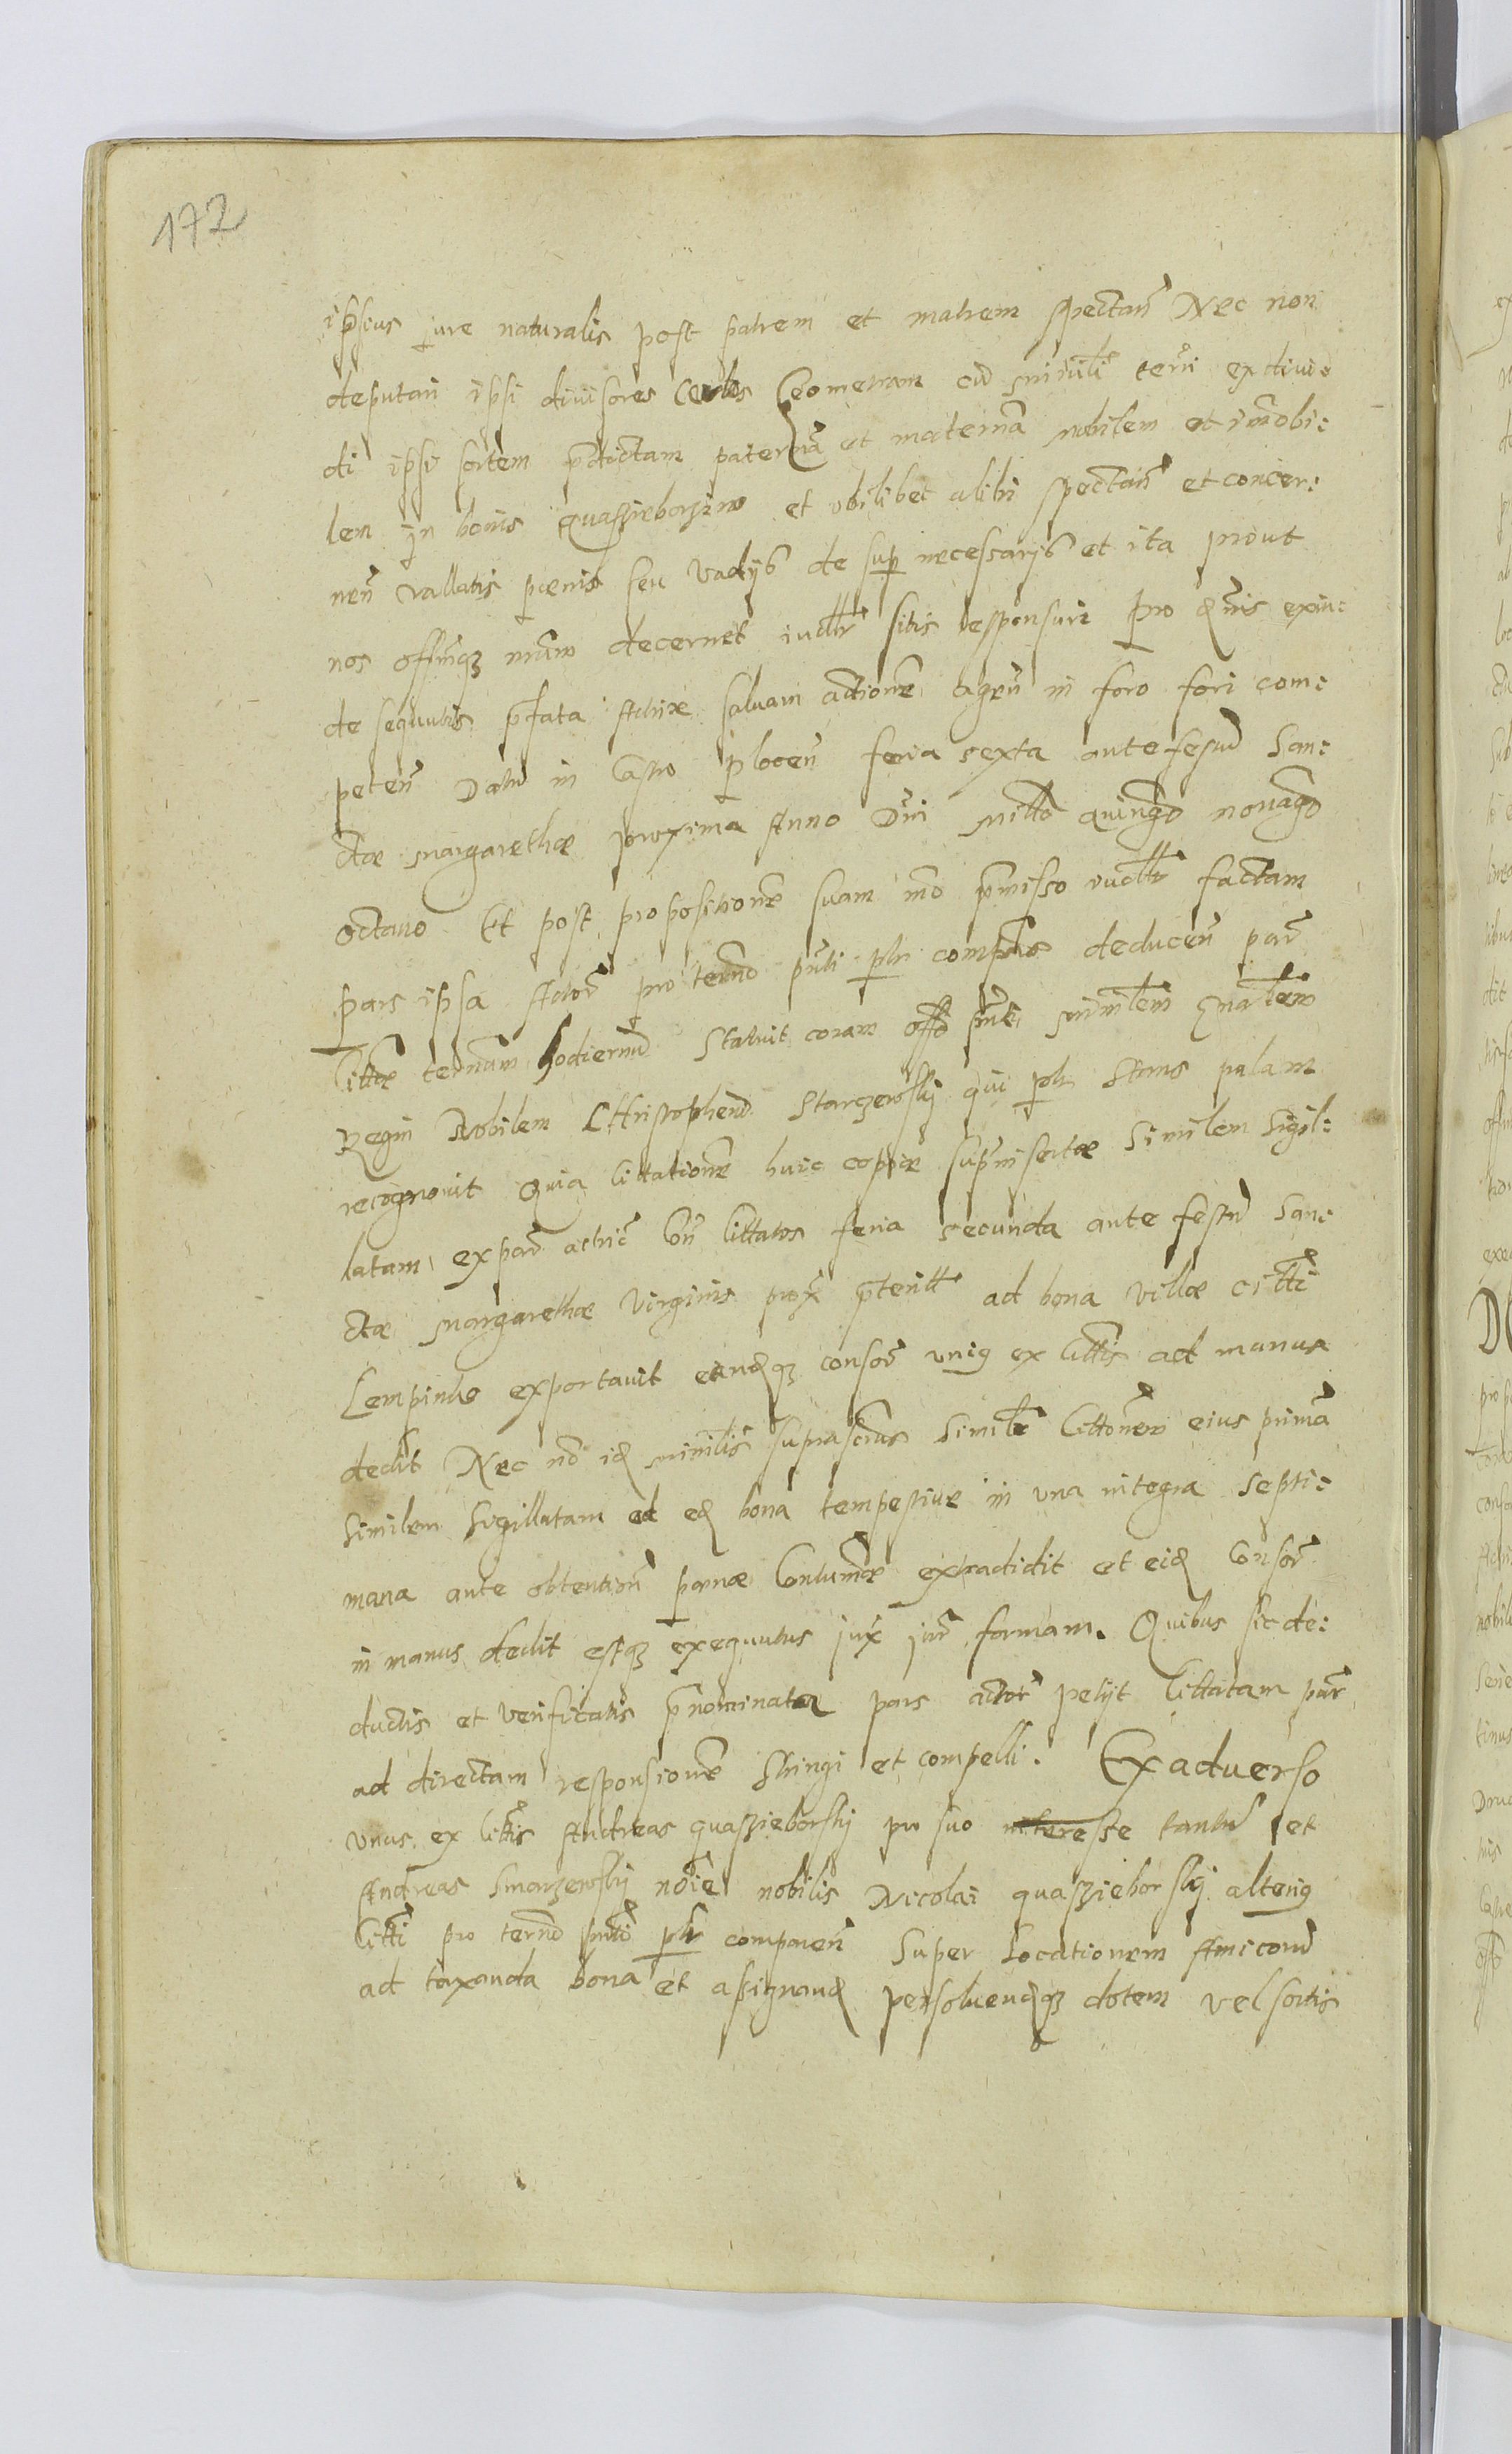 172
ipsius jure naturalis post patrem et matrem spectan̄ Nec non
deputari ipsi divisores certos Geometram cu᷈ ministerali terrᷓi ex divi:
di ipsi sortem p̄dictam paternā et maternā mobilem et im̄obi:
lem in bonis Quassieborzino et ubilibet alibi spectān et concer:
nen̄ vallatis pœnis seu vadijs de sup necessarijs et ita prout
nos offm̄qȝ nrum decernet iudllr sitis responsuri pro quis exin:
de sequutis p̄fata Actrix salvam actionē agen̄ in foro fori com:
peten̄ Datu᷈ in Castro plocen̄ feria sexta ante festu᷈ San:
ctæ Margarethæ proxima Anno Dn̄i mill̄o quingō nonagō
octavo Et post propositionē suam mō p̄misso iudllr factam
pars ipsa Actor pro termo pn̄ti plr comprns deducen̄ par
Cittæ termū hodiernū statuit coram offō pn̄ti min̄lem gn̄alem
Regni Nobilem Christopheru᷈ Starzewskj qui plr stans palam
recognovit Quia cittationē huic copiæ supinsertæ similem sigil:
latam ex par actric Con̄ cittatos feria secunda ante festu᷈ San:
ctæ Margarethæ virginis prox p̄teritt ad bona villæ citti
Lempino exportavit eandqȝ consor unig ex cittis ad manus
dedit Nec nō id minilis suprascrus similr cittonem eius primā
similem sigillatam ad ed bona tempestive in una integra septi:
mana ante obtention̄ pœnæ Contumæ extradidit et eid Consor
in manus dedit estqȝ exequutus jux jur formam. Quibus sic de:
ductis et verificatis p̄nominata pars actor petijt Cittatam par
ad directam responsionē stringi et compelli. Ex adverso
unus ex cittis Andreas quassieborskj pro suo interesse tantu᷈ et
Andreas Smarzewskj nōie nobilis Nicolai quassieborskj alterig
citti pro termō pn̄ti plr comparen̄ super Locationem Amicoru᷈
ad taxanda bona et assignand persoluendqȝ dotem vel sortis